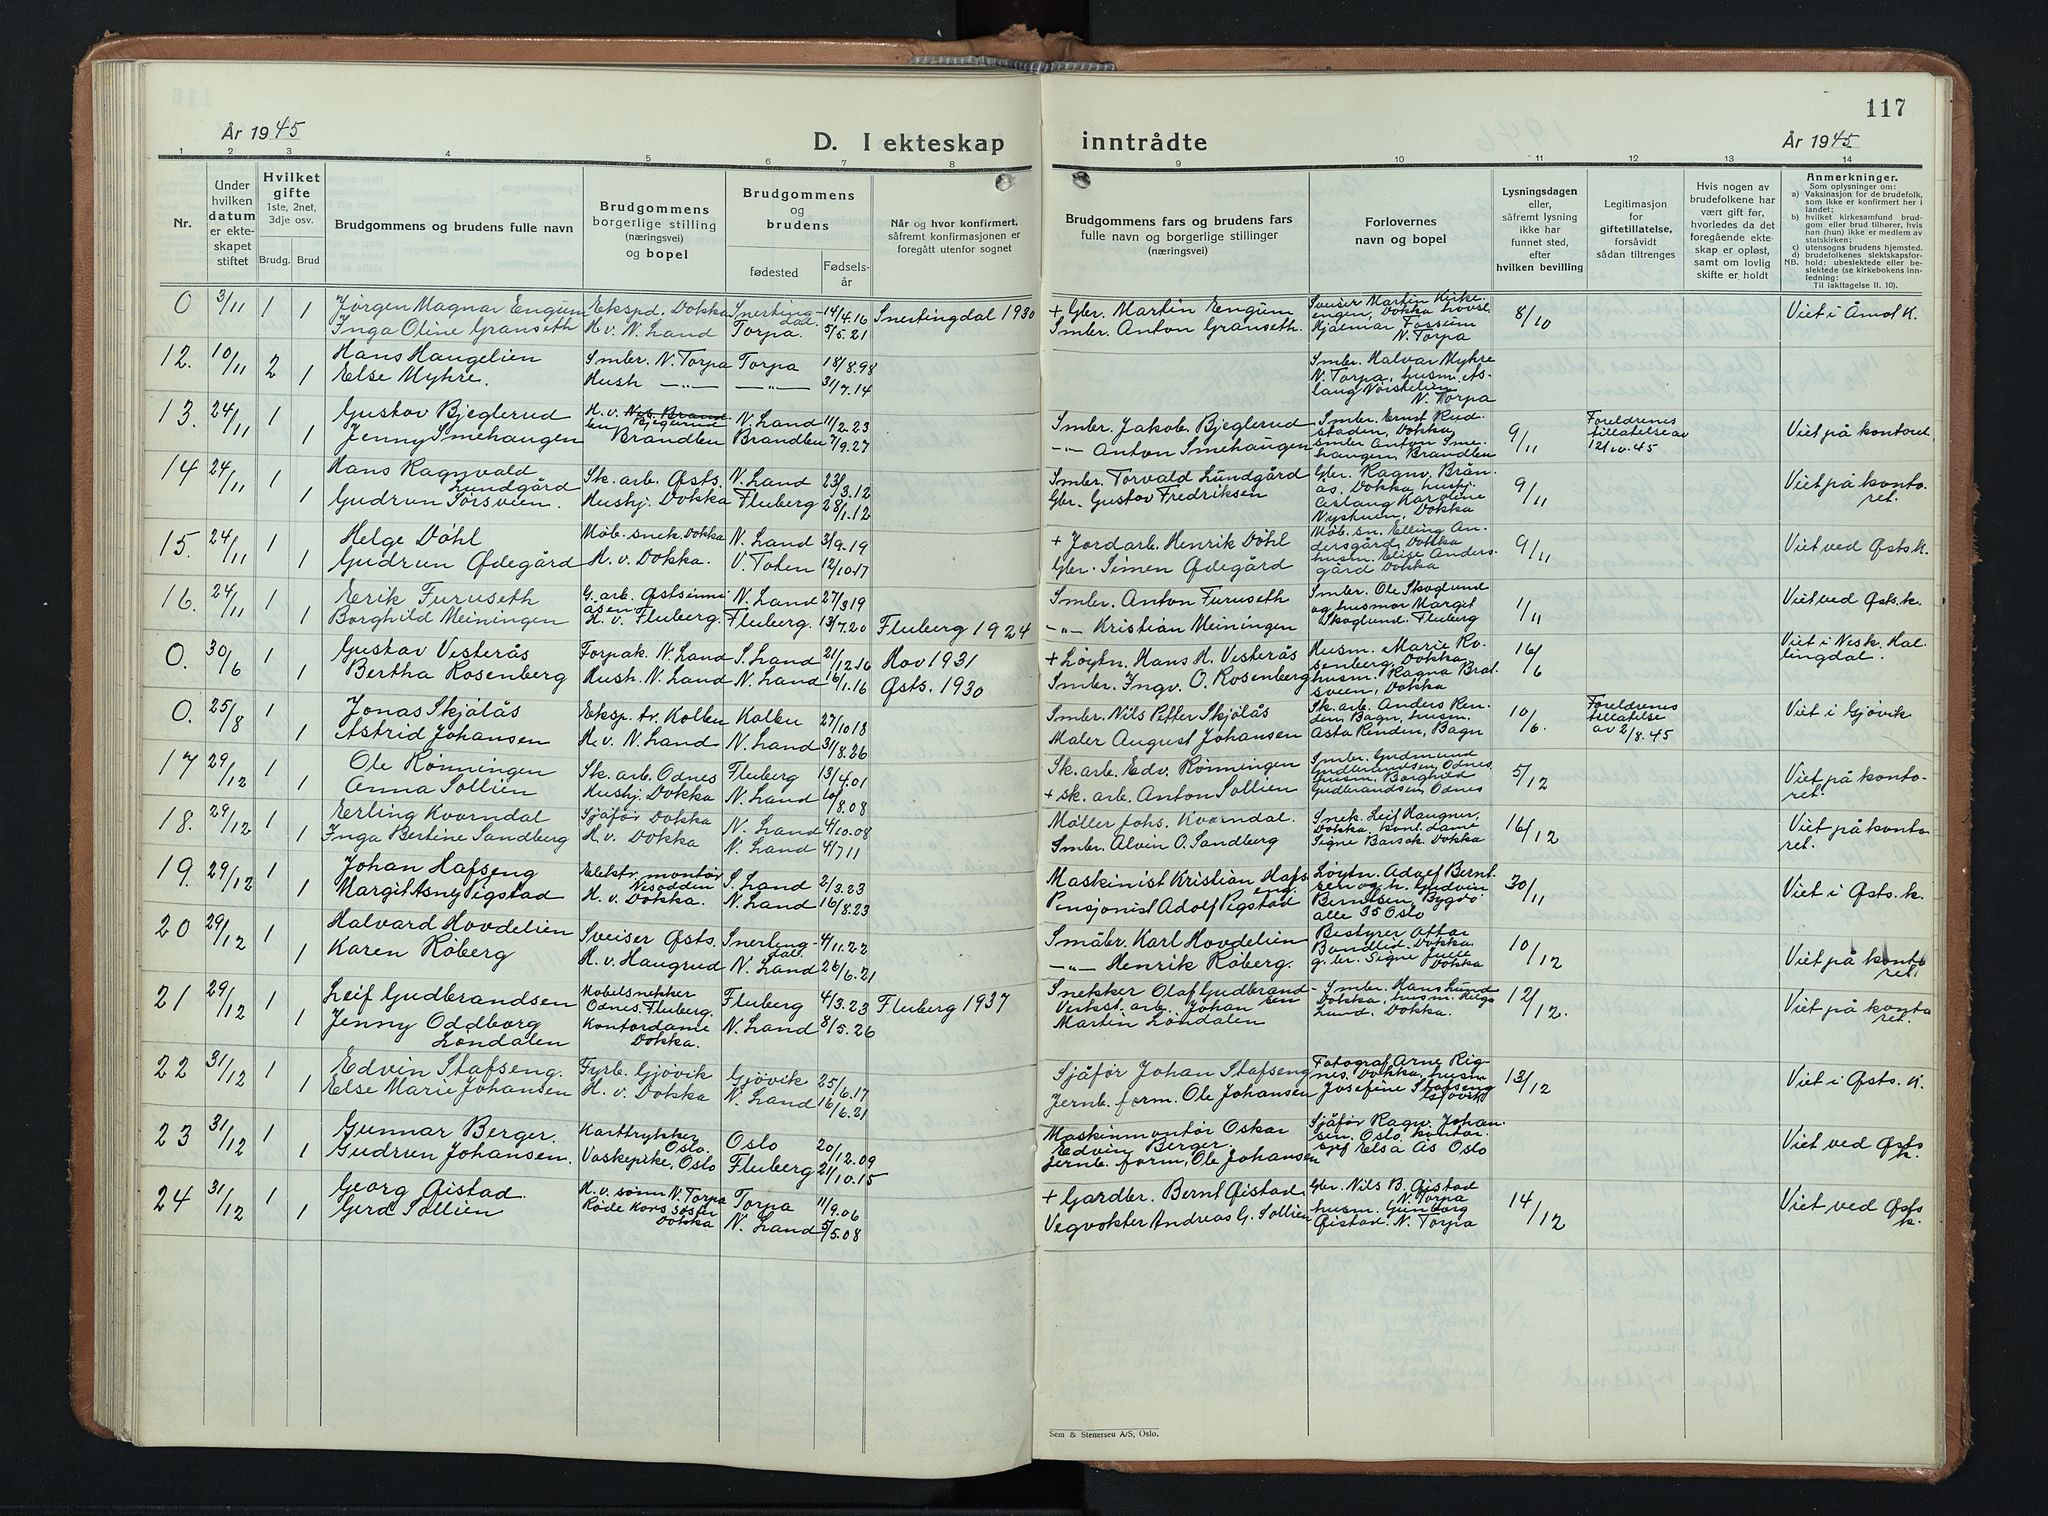 117
År 1945
D. I ekteskap inntrådte
År 1945
1 2 3 4 5 6 7 8 9 10 11 12 13 14
Nr.
Under hvilken datum er ekteskapet stiftet
Hvilket gifte 1ste, 2net, 3dje osv.
Brudg. Brud
Brudgommens og brudens fulle navn
Brudgommens borgerlige stilling (næringsvei) og bopel
Brudgommens og brudens
fødested
Fødselsår
Når og hvor konfirmert, såfremt konfirmasjonen er foregått utenfor sognet
Brudgommens fars og brudens fars fulle navn og borgerlige stillinger (næringsvei)
Forlovernes navn og bopel
Lysningsdagen eller, såfremt lysning ikke har funnet sted, efter hvilken bevilling
Legitimasjon for giftetillatelse, forsåvidt sådan tiltrenges
Hvis nogen av brudefolkene har vært gift før, hvorledes da det foregående ekteskap er opløst, samt om lovlig skifte er holdt
Anmerkninger.
Som oplysninger om:
a) Vaksinasjon for de brudefolk, som ikke er konfirmert her i landet;
b) hvilket kirkesamfund brudgom eller brud tilhører, hvis han (hun) ikke er medlem av statskirken;
c) utensogns brudens hjemsted.
d) brudefolkenes slektskapsforhold: ubeslektede eller beslektede (se kirkebokens innledning:
NB.
Til iakttagelse II. 10).
0 3/11 1 Jørgen Magnar Engum Ekspd. Dokka Snertingdal 14/4.16 Snertingdal 1930 + Gbr. Martin Engum Sveiser Martin Kirkeengen, Dokka 8/10 Viet i Åmot K.
1 Inga Oline Granseth H.v. N. Land Torpa. 5/5.21 Smbr. Anton Granseth. Hjalmar Fossum N. Torpa
12. 10/11 2 Hans Haugelien Smbr. N. Torpa Torpa 18/8.98 Smbr. Halvar Myhre N. Torpa, husm.
1 Else Myhre. Hush —"— —"— 31/7.14 N. Torpa
13. 24/11 1 Gustav Bjeglerud H.v. Bjeglerud N. Land 11/2.23 Smbr. Jakob Bjeglerud Smbr. Ernst Rudstaden, Dokka 9/11 Foreldrenes tillatelse av 12/10.45 Viet på kontoret
1 Jenny Smehaugen Brandbu Brandbu 7/9.27 —"— Anton Smehaugen smbr Anton Smehaugen, Brandbu
14 24/11 1 Hans Ragnvald Lundgård Sk. arb. Østs. N. Land 23/3.12 Smbr. Torvald Lundgård Gbr. Ragnv. Brånås, Dokka, hushj. 9/11 Viet på kontoret.
1 Gudrun Sørsveen. Hushj. Dokka Fluberg 28/1.12 Gbr. Gustov Fredriksen Aslaug Karoline Nystuen, Dokka
15. 24/11 1 Helge Döhl Møb. snek. Dokka N. Land 3/9.19 + Jordarb. Henrik Döhl Møb. sn. Elling Andersgård, Dokka 9/11 Viet ved Østs. K.
1 Gudrun Ødegård H.v. Dokka. V. Toten 12/10.17 Gbr. Simen Ødegård husm. Elise Andersgård Dokka
16. 24/11 1 Erik Furuseth G. arb. Østsinniåsen N. Land 27/3.19 Smbr. Anton Furuseth Smbr. Ole Skoglund 1/11 Viet ved Østs. k.
1 Borghild Meiningen H.v. Fluberg. Fluberg. 13/7.20 Fluberg 1924 —"— Kristian Meiningen og husmor Margit Skoglund. Fluberg
0. 30/6 1 Gustav Vesterås Forpak. N. Land S. Land 21/12.16 Hov 1931 + Løytn. Hans H. Vesterås Husm. Marie Rosenberg, Dokka 16/6 Viet i Nesk. Hallingdal.
1 Bertha Rosenberg Hush. N. Land N. Land 16/1.16 Østs. 1930 Smbr. Ingv. O. Rosenberg husm. Ragna Bratsveen, Dokka
0. 25/8 1 Jonas Skjølås Eksp. tr. Kolbu Kolbu 27/10.18 Smbr. Nils Petter Skjølås Sk. arb. Anders Renden, Bagn, husm. 10/6. Foreldrenes tillatelse av 2/8.45 Viet i Gjøvik
1 Astrid Johansen H.v. N. Land N. Land 31/8.26 Maler August Johansen Asta Renden, Bagn
17 29/12 1 Ole Rönningen Sk. arb. Odnes Fluberg 13/4.01 Sk. arb. Edv. Rönningen Smbr. Gudmund Gudbrandsen, Odnes 5/12 Viet på kontoret.
1 Anna Sollien Hushj. Dokka N. Land 10/8.08 + sk. arb. Anton Sollien husm. Borghild Gudbrandsen, Odnes
18. 29/12 1 Erling Kvorndal Sjåför Dokka N. Land 4/10.08 Møller Johs. Kvorndal. Snek. Leif Haugner, Dokka, kont. dame 16/12 Viet på kontoret.
1 Inga Bertine Sandberg H.v. Dokka N. Land 4/7.11 Smbr. Alvin O. Sandberg Signe Barsok. Dokka
19. 29/12 1 Johan Hafseng Elektr. montør Nesodden S. Land 2/3.23 Maskinist Kristian Hafseng. Løytn. Adolf Berntsen og h. Gudvin 30/11 Viet i Østs. k.
1 Margit Asny Pigstad H.v. Dokka. N. Land 16/8.23 Pensjonist Adolf Pigstad Berntsen, Bygdö alle 35 Oslo
20 29/12 1 Halvard Hovdelien Sveiser Østs. Snertingdal 4/11.22 Småbr. Karl Hovdelien Bestyrer Ottar Bondlid. Dokka 10/12 Viet på kontoret.
1 Karen Röberg H.v. Haugrud N. Land 26/6.21 —"— Henrik Röberg. g. br. Signe Dokka
21 29/12 1 Leif Gudbrandsen Møbelsnekker Odnes. Fluberg. Fluberg 4/3.23 Fluberg 1937 Snekker Olaf Gudbrandsen Smbr. Hans Lund Dokka, husm. Helga Lund. Dokka. 12/12. Viet på kontoret.
1 Jenny Oddborg Löndalen Kontordame Dokka. N. Land 8/5.26 Verkst. arb. Johan Martin Löndalen
22 31/12 1 Edvin Stafseng. Fyrb. Gjövik Gjövik 25/6.17 Sjåför Johan Stafseng Fotograf Arne Rignes. Dokka, husm. 13/12 Viet i Østs. K.
1 Else Marie Johansen H.v. Dokka N. Land 16/6.21 Jernb. form. Ole Johansen Josefine Stafseng Gjøvik
23 31/12 1 Gunnar Berger. Karttrykker Oslo. Oslo 20/12.09 Maskinmontör Oskar Edvin Berger. Sjåför Ragnv. Johansen. Oslo, kontor. Viet ved Østs k.
1 Gudrun Johansen. Vaskepike, Oslo Fluberg 21/10.15 Jernb. form, Ole Johansen Elsa Ås Oslo
24 31/12 1 Georg Øistad. H.v. sønn N. Torpa Torpa 11/9.06 + Gardbr. Bernt Øistad Gbr. Nils B. Øistad N. Torpa 14/12 Viet ved Østs k.
1 Gerd Sollien Røde Kors søster Dokka N. Land 5/5.08 Vegvokter Andreas G. Sollien husm. Gunborg Øistad. N. Torpa
Sem & Stenersen A/S, Oslo.